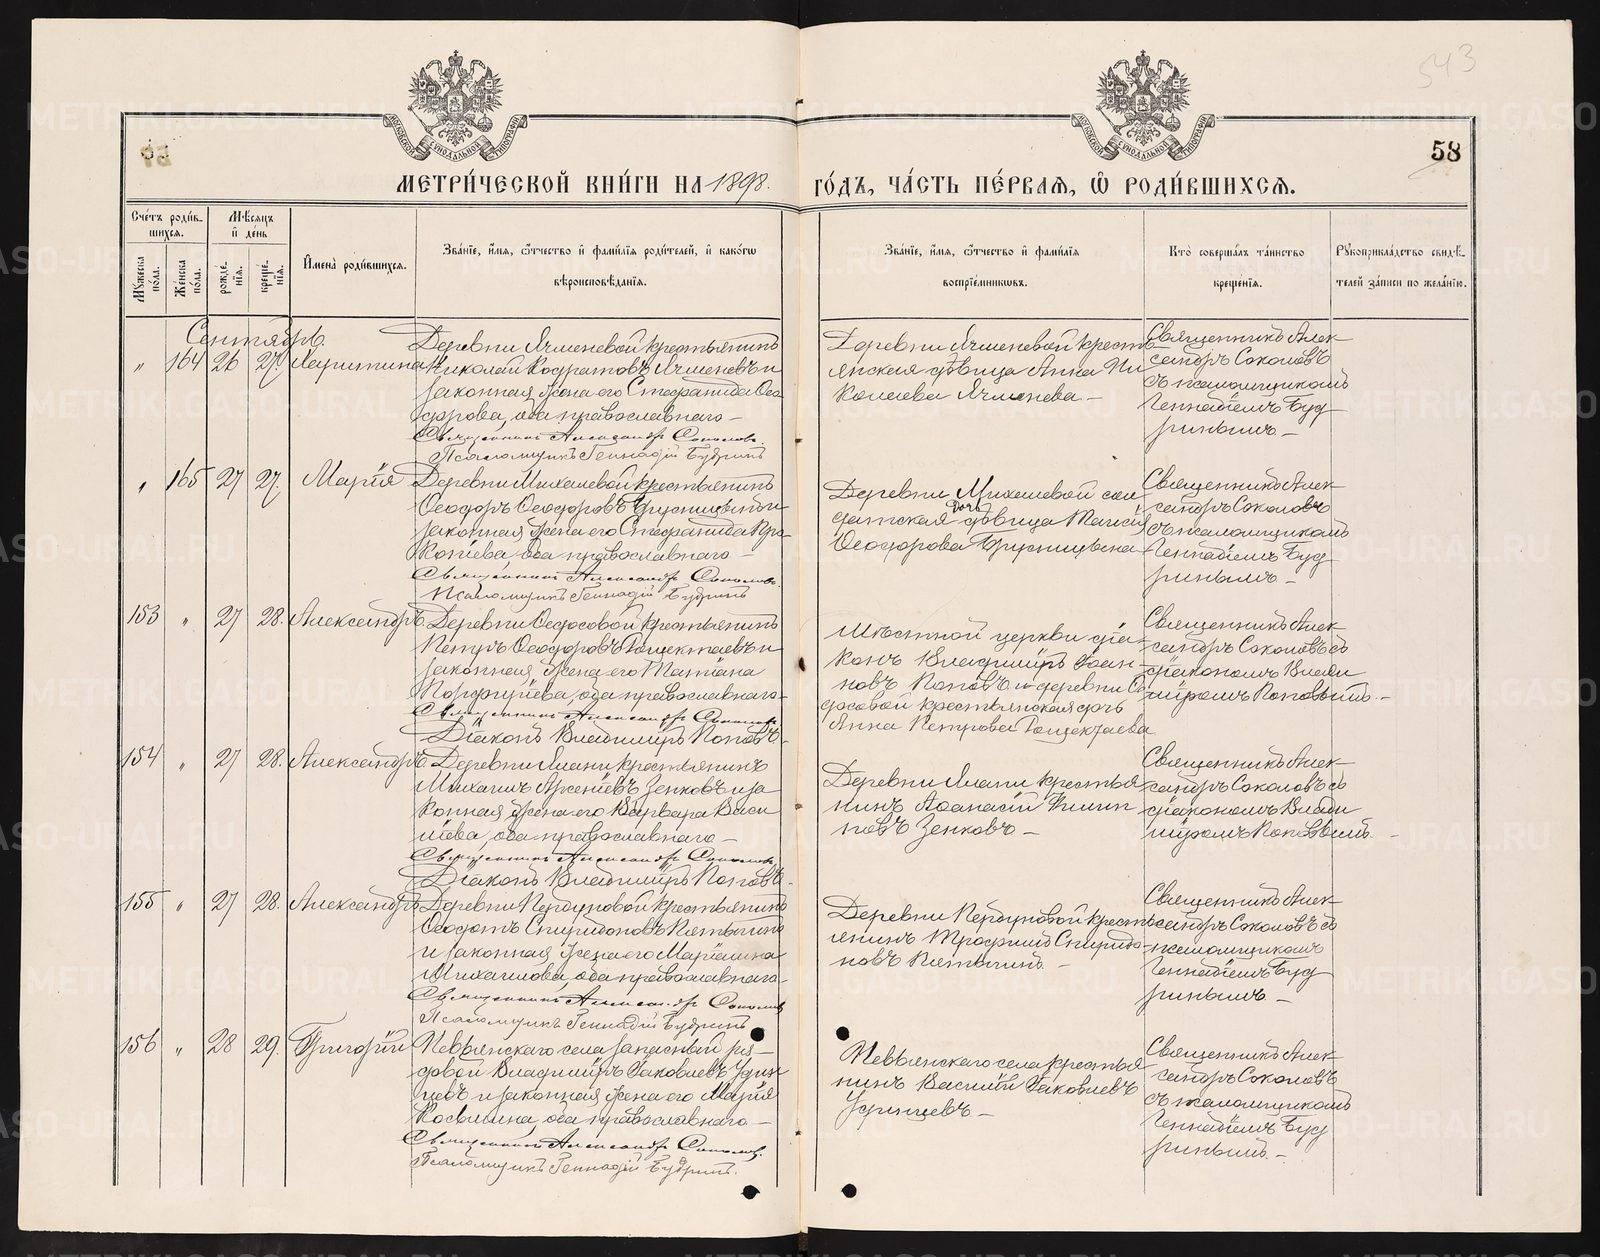 543
58
МЕТРИЧЕСКОЙ КНИГИ НА 1898. ГОДЪ, ЧАСТЬ ПЕРВАЯ, Ѡ РОДИВШИХСЯ.
Счетъ родившихся.
Мужеска пола.
Женска пола.
Мѣсяцъ и день
рожденія.
крещенія.
Имена родившихся.
Званіе, имя, ѡтчество и фамилія родителей, и какогѡ вѣроисповѣданія.
Званіе, имя, ѡтчество и фамилія воспріемникѡвъ.
Кто совершалъ таинство крещенія.
Рукоприкладство свидѣтелей записи по желанію.
Сентябрь.
„ 164 26 27.
Деревни Ячменевой крестьянинъ
Николай Ячменевъ и
законная жена его Стефанида Ѳео
дорова, оба православнаго –
Священникъ Александръ Соколовъ.
Псаломщикъ Геннадій Будринъ
Деревни Ячменевой кресть
янская дѣвица Анна Ни
колаева Ячменева –
Священникъ Алек
сандръ Соколовъ
съ псаломщикомъ
Геннадіемъ Буд
ринымъ –
„ 165 27 27. Марія
Деревни Михалевой крестьянинъ
Ѳеодоръ Ѳеодоровъ Брусницынъ и
законная жена его Стефанида Про
копіева, оба православнаго –
Священникъ Александръ Соколовъ.
Псаломщикъ Геннадій Будринъ
Деревни Михалевой сол
датская дочь дѣвица Таисія
Ѳеодорова Брусницына
Священникъ Алек
сандръ Соколовъ
съ псаломщикомъ
Геннадіемъ Буд
ринымъ –
153 „ 27 28. Александръ
Деревни Ѳедосовой крестьянинъ
Петръ Ѳеодоровъ и
законная жена его Татіана
Порфирьева, оба православнаго –
Священникъ Александръ Соколовъ
Діаконъ Владиміръ Поповъ
Мѣстной церкви діа
конъ Владиміръ Іоан
новъ Поповъ и деревни Ѳе
досовой крестьянская дочь
Анна Петрова
Священникъ Алек
сандръ Соколовъ съ
діакономъ Влади
міромъ Поповымъ. –
154 „ 27 28. Александръ
Деревни Ялани крестьянинъ
Михаилъ Арсеніевъ Зенковъ и за
конная жена его Варвара Васи
ліева, оба православнаго –
Священникъ Александръ Соколовъ
Діаконъ Владиміръ Поповъ
Деревни Ялани крестья
нинъ Аѳанасій Филип
повъ Зенковъ –
Священникъ Алек
сандръ Соколовъ съ
діакономъ Влади
міромъ Поповымъ. –
155 „ 27 28. Александръ
Деревни крестьянинъ
Ѳеодотъ Спиридоновъ Пятыгинъ
и законная жена его Маріамна
Михаилова, оба православнаго –
Священникъ Александръ Соколовъ
Псаломщикъ Геннадій Будринъ
Деревни кресть
янинъ Трофимъ Спиридо
новъ Пятыгинъ –
Священникъ Алек
сандръ Соколовъ съ
псаломщикомъ
Геннадіемъ Буд
ринымъ –
156 „ 28 29. Григорій
Невьянскаго села запасный ря
довой Владиміръ Іаковлевъ Удин
цевъ и законная жена его Марія
Косьмина, оба православнаго –
Священникъ Александръ Соколовъ.
Псаломщикъ Геннадій Будринъ.
Невьянскаго села крестья
нинъ Василій Іаковлевъ
Удинцевъ –
Священникъ Алек
сандръ Соколовъ
съ псаломщикомъ
Геннадіемъ Буд
ринымъ. –